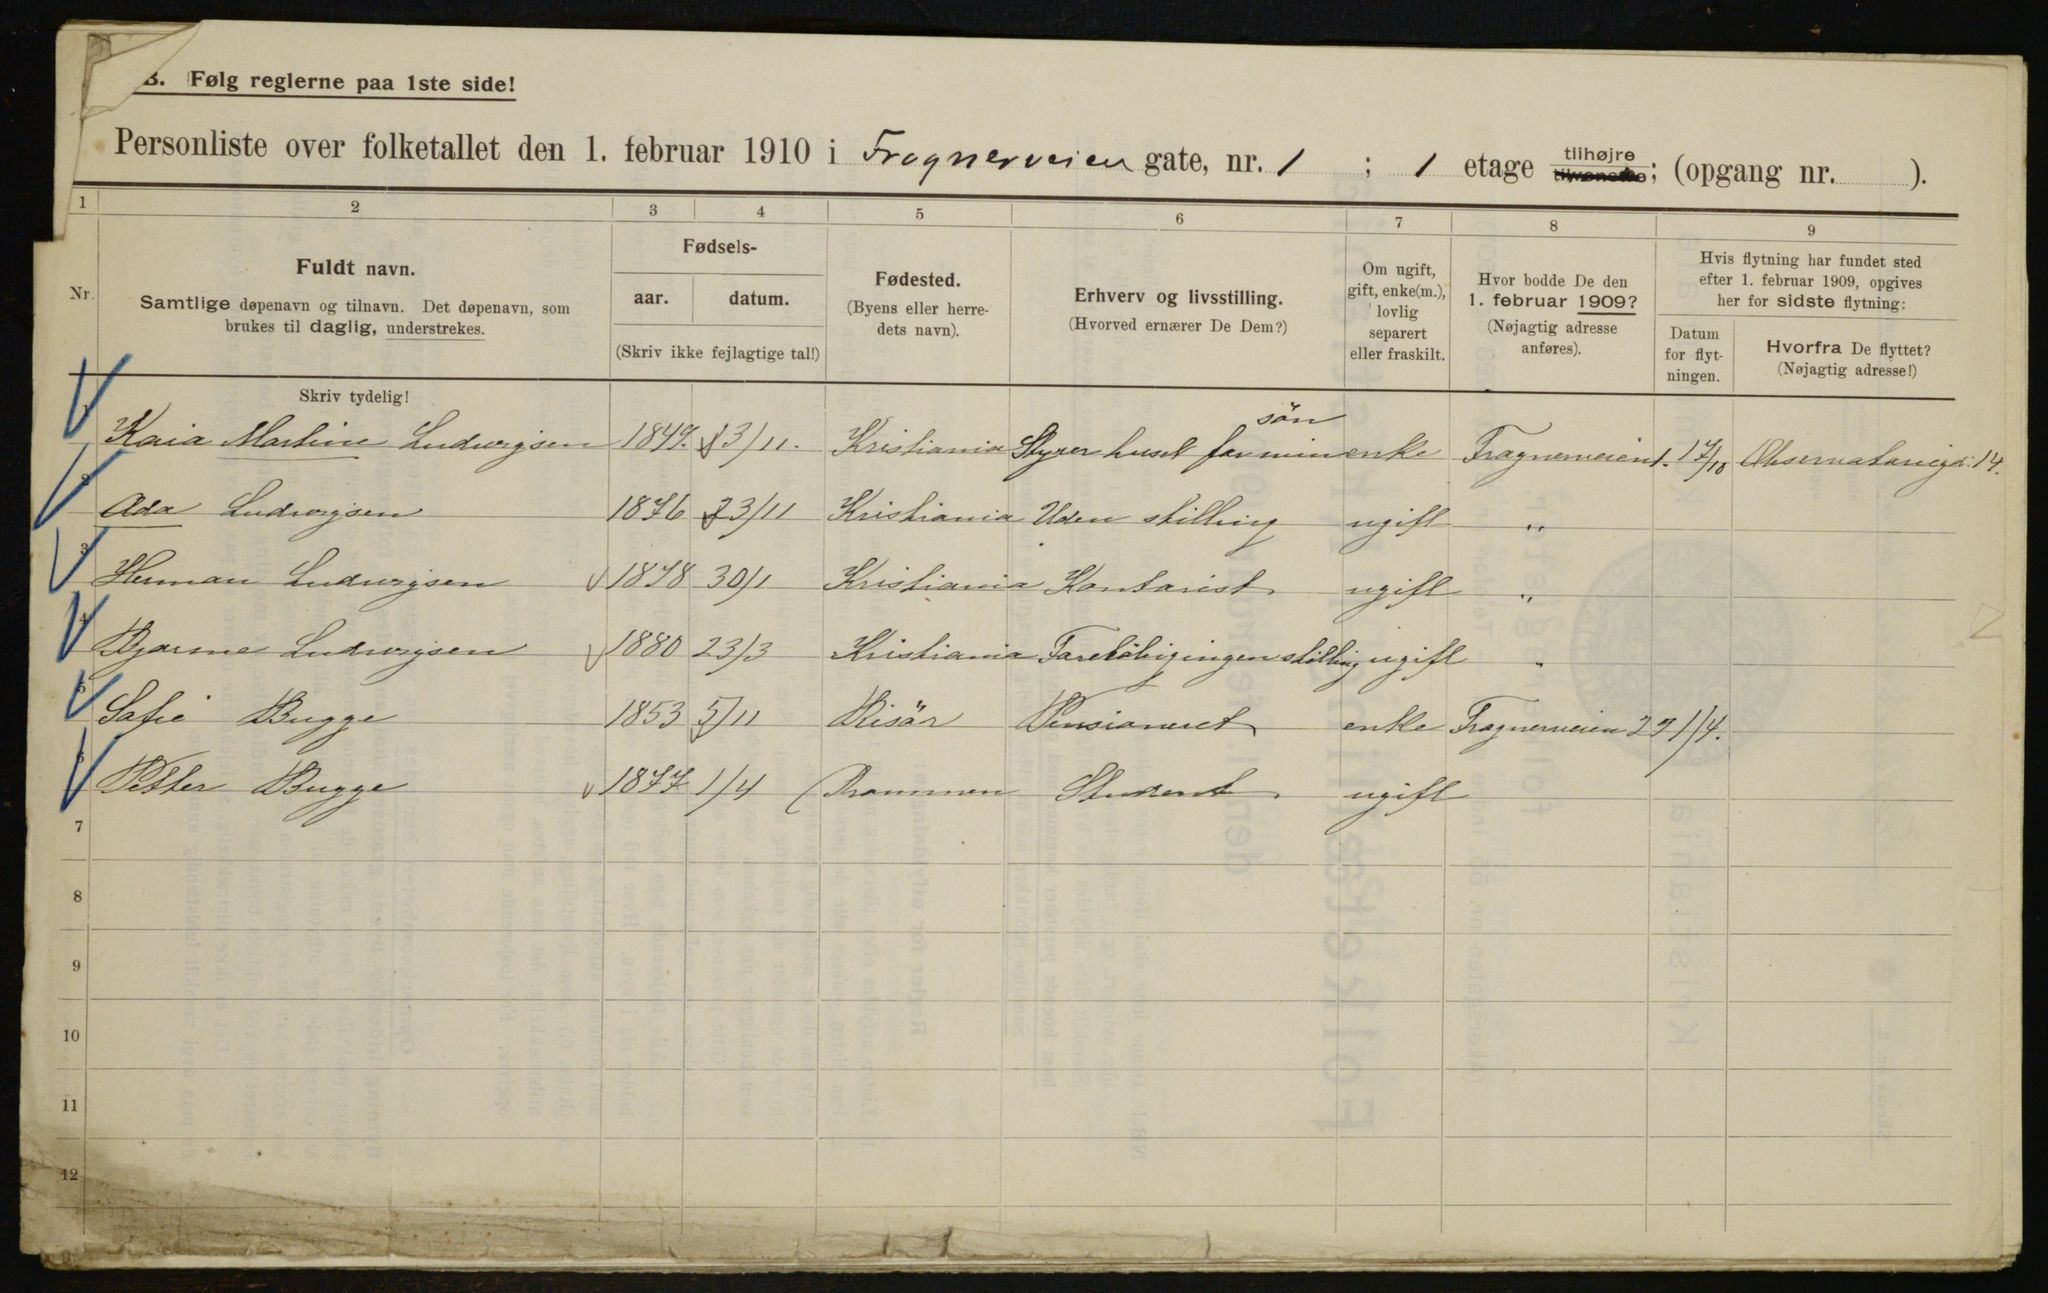 B. Følg reglerne paa 1ste side!
Personliste over folketallet den 1. februar 1910 i Frognerveien gate, nr. 1 ; 1 etage tilhøjre tilvenstre; (opgang nr. ).
1 2 3 4 5 6 7 8 9
Nr.
Fuldt navn.
Samtlige døpenavn og tilnavn. Det døpenavn, som
brukes til daglig, understrekes.
Fødsels-
aar. datum.
(Skriv ikke fejlagtige tal!)
Fødested.
(Byens eller herre-
dets navn).
Erhverv og livsstilling.
(Hvorved ernærer De Dem?)
Om ugift,
gift, enke(m.),
lovlig
separert
eller fraskilt.
Hvor bodde De den
1. februar 1909?
(Nøjagtig adresse
anføres).
Hvis flytning har fundet sted
efter 1. februar 1909, opgives
her for sidste flytning:
Datum
for flyt-
ningen.
Hvorfra De flyttet?
(Nøjagtig adresse!)
Skriv tydelig!
søn
1 Kaia Martine Ludwigsen 1849. 13/11. Kristiania Styrer huset for min enke Frognerveien 1. 17/10 Observatoriegd: 14.
2 Ada Ludwigsen 1876 23/11 Kristiania Uden stilling ugift "
3 Herman Ludwigsen 1878 30/1 Kristiania Kontorist ugift "
4 Bjarne Ludwigsen 1880 23/3 Kristiania Foreløbig ingen stilling ugift "
5 Sofie Bugge 1853 5/11 Risör Pensioneret enke Frognerveien 29 1/4.
6 Petter Bugge 1877 1/4 Drammen Student ugift
7
8
9
10
11
12